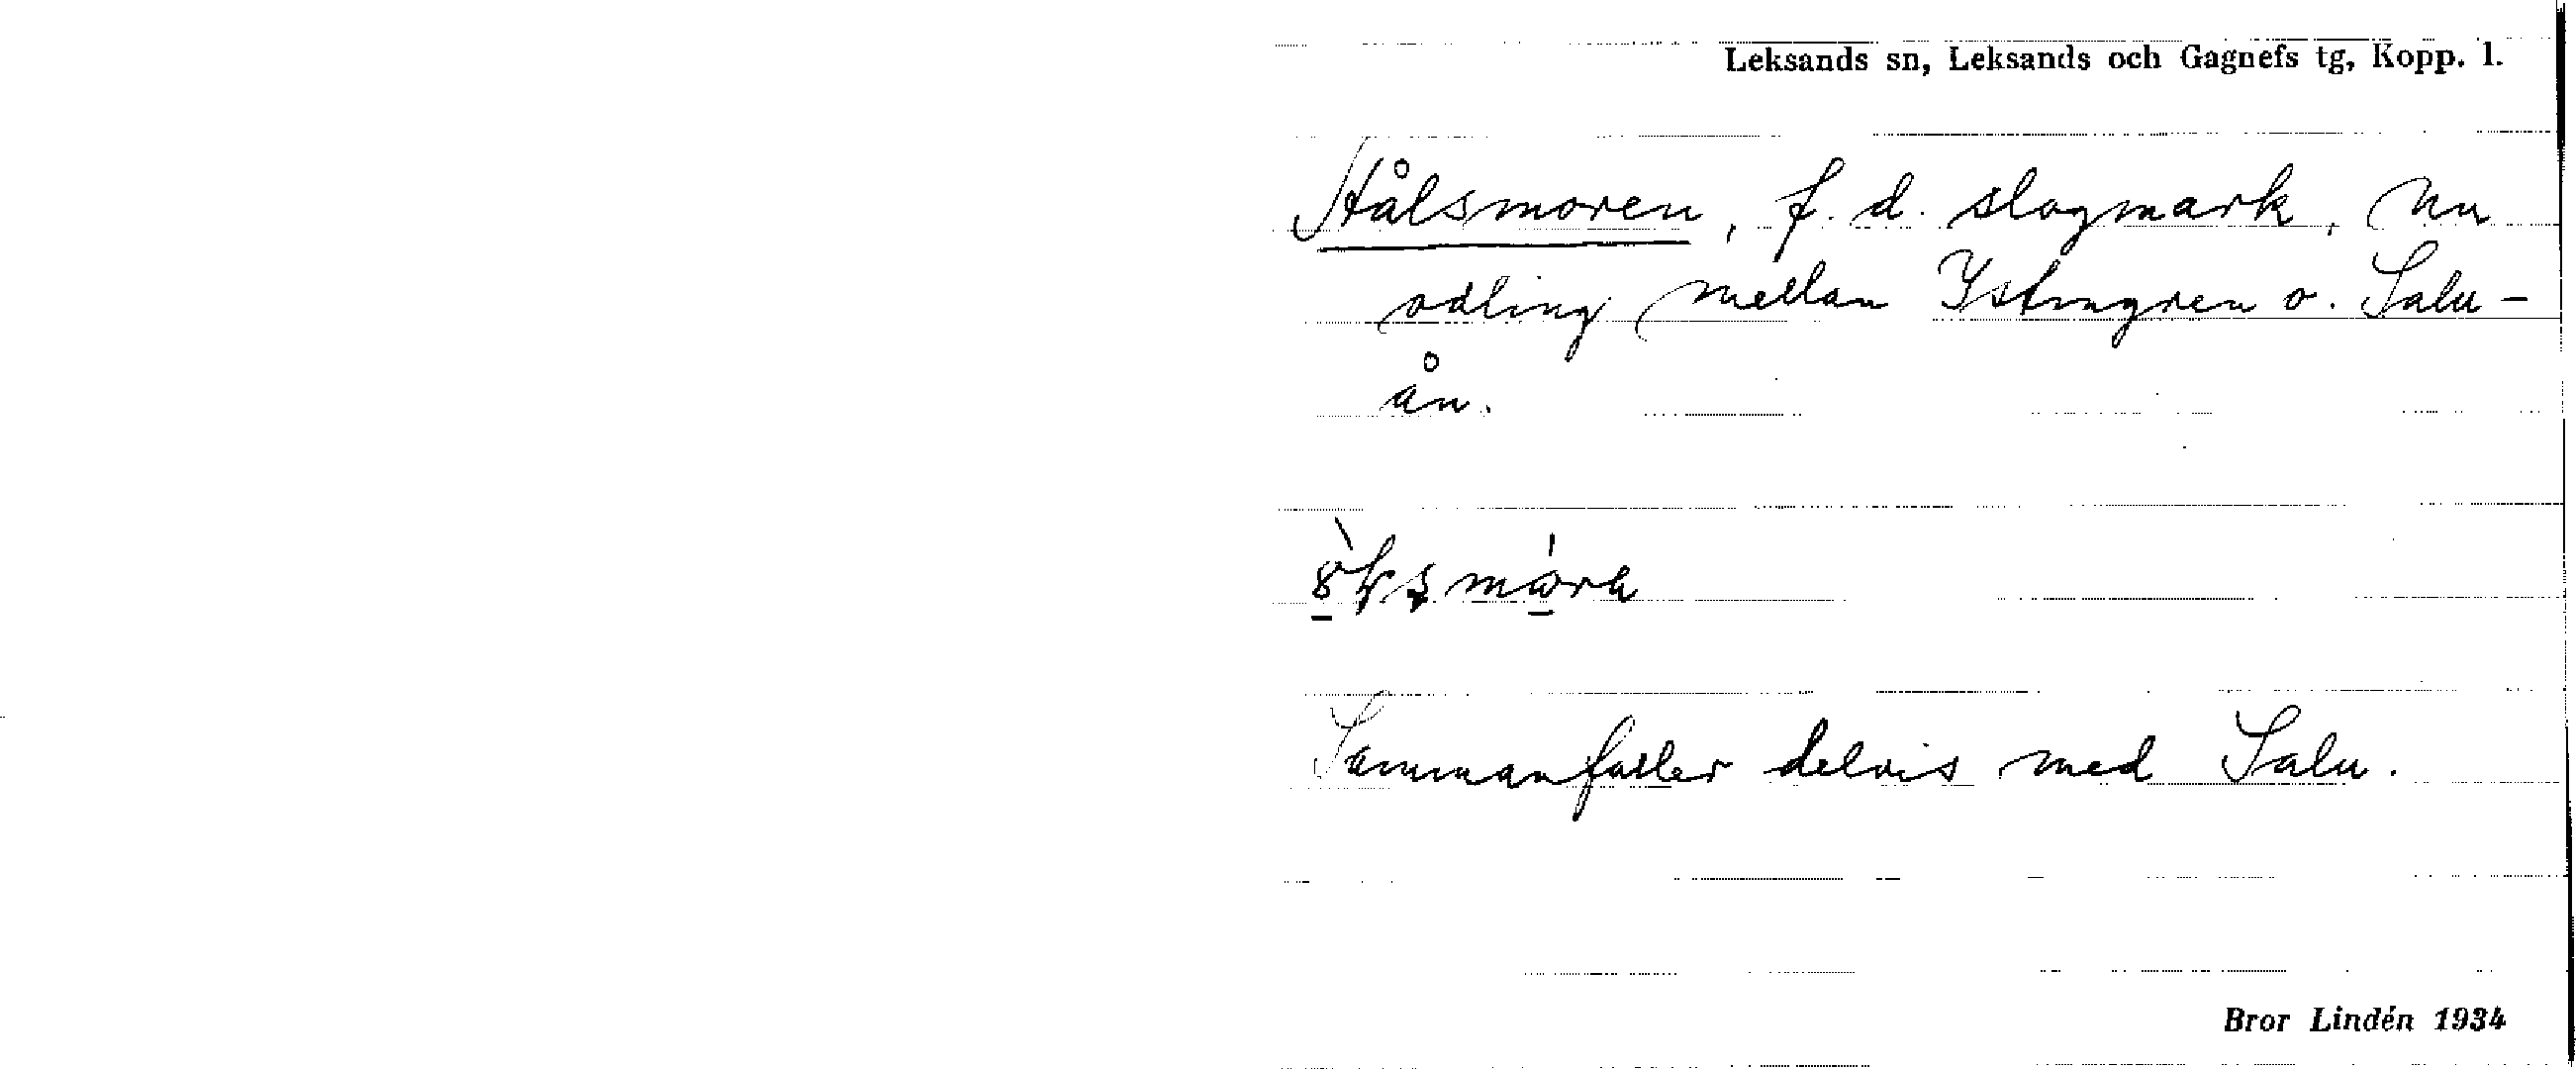 Leksands sn, Leksands och Gagnefs tg, Kopp. l.
Hålsmoren, f. d. slogmark, nu
odling mellan Ystingren o. Salu-
ån.
Sammanfaller delvis med Salu.
Bror Lindén 1934